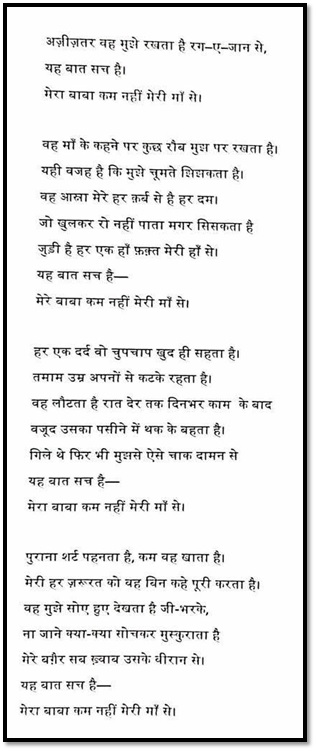 अज़ीज़तर वह मुझे रखता है रग–ए–जान से,
यह बात सच है।
मेरा बाबा कम नहीं मेरी माँ से।
वह माँ के कहने पर कुछ रौब मुझ पर रखता है।
यही वजह है कि मुझे चूमते झिझकता है।
वह आस्ना मेरे हर क़र्ब से है हर दम।
जो खुलकर रो नहीं पाता मगर सिसकता है
जुड़ी है हर एक हाँ फ़क़्त मेरी हाँ से।
यह बात सच है—
मेरे बाबा कम नहीं मेरी माँ से।
हर एक दर्द वो चुपचाप खुद ही सहता है।
तमाम उम्र अपनों से कटके रहता है।
वह लौटता है रात देर तक दिनभर काम के बाद
वजूद उसका पसीने में थक के बहता है।
गिले थे फिर भी मुझसे ऐसे चाक दामन से
यह बात सच है—
मेरा बाबा कम नहीं मेरी माँ से।
पुराना शर्ट पहनता है, कम वह खाता है।
मेरी हर ज़रूरत को वह बिन कहे पूरी करता है।
वह मुझे सोए हुए देखता है जी-भरके,
ना जाने क्या-क्या सोचकर मुस्कुराता है
मेरे बग़ैर सब ख़्वाब उसके वीरान से।
यह बात सच है—
मेरा बाबा कम नहीं मेरी माँ से।